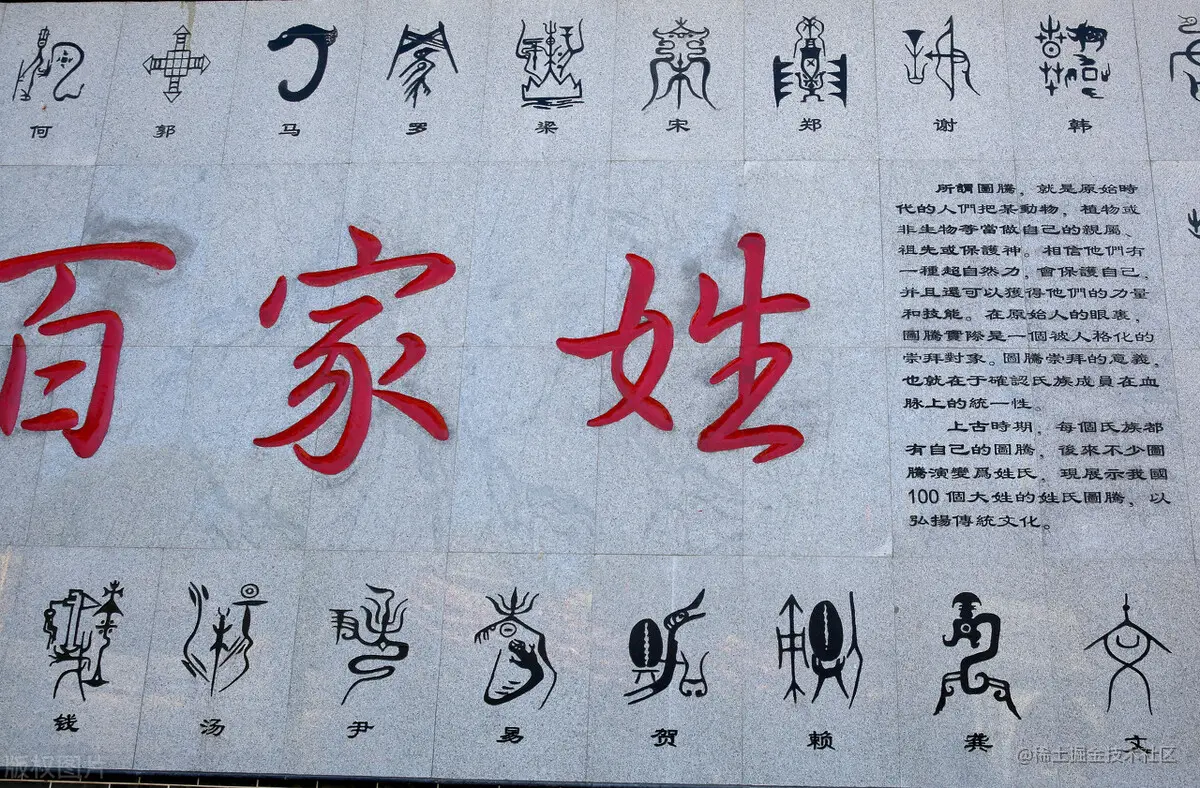 何 郭 马 罗 梁 宋 郑 谢 韩
百家姓
所謂圖騰，就是原始時
代的人們把某動物，植物或
非生物等當做自己的親屬、
祖先或保護神。相信他們有
一種超自然力，會保護自己，
并且還可以獲得他們的力量
和技能。在原始人的眼裏，
圖騰實際是一個被人格化的
崇拜對象。圖騰崇拜的意義，
也就在于確認氏族成員在血
脉上的統一性。
上古時期，每個氏族都
有自己的圖騰，後來不少圖
騰演變爲姓氏，現展示我國
100個大姓的姓氏圖騰，以
弘揚傳統文化。
钱 汤 尹 易 贺 赖 龚 文
版权图片
@稀土掘金技术社区